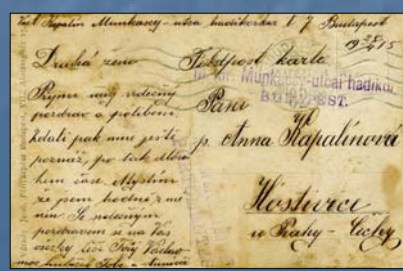 Kapalín Munkacsy-utca hadikorház t. 7 Budapest
19 28/4 15
Drahá ženo
Přijmi můj srdečný
pozdrav a políbení.
Zdali pak mne ještě
poznáš, po tak dlou
hém čase. Myslím
že jsem hodně změ
něn. Se srdečným
pozdravem se na Vás
všecky těší Tvůj
Feldpost karte
Munkácsy-utcai hadikór
BUDAPEST.
Paní
p. Anna Kapalínová
Hostivice
u Prahy - Čechy